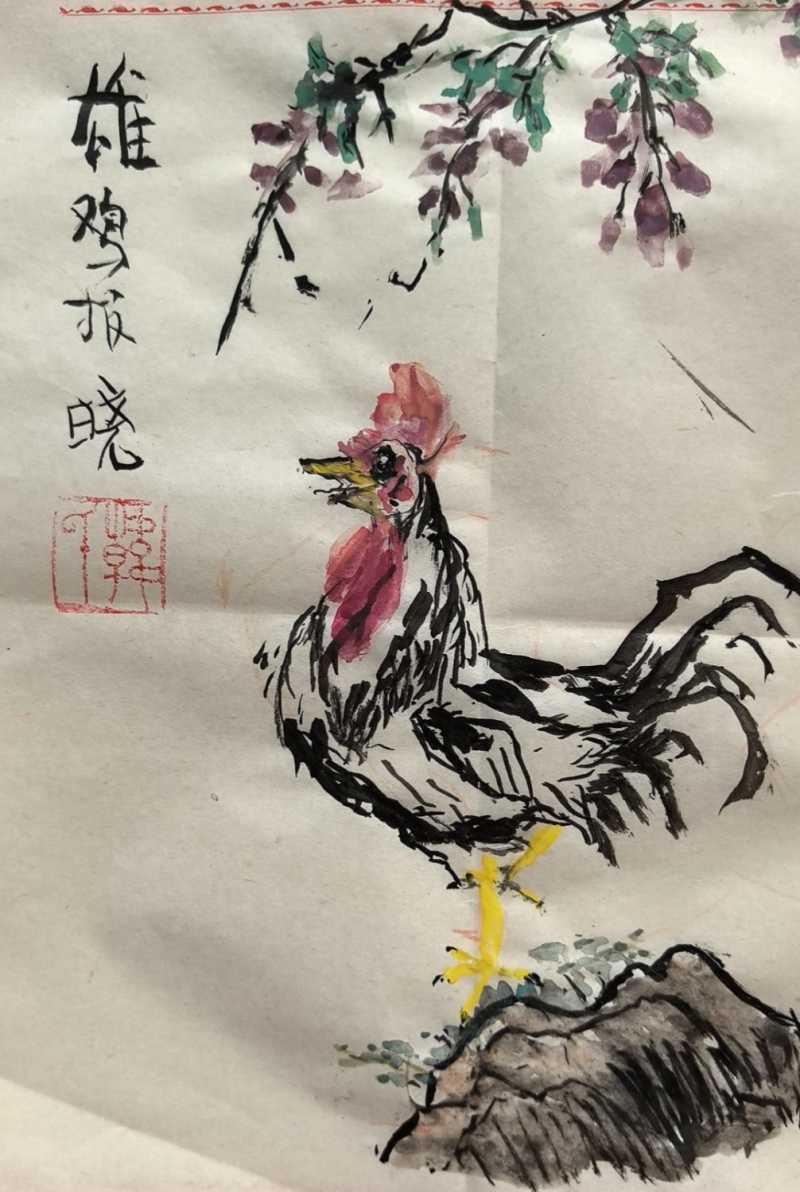 雄鸡报晓